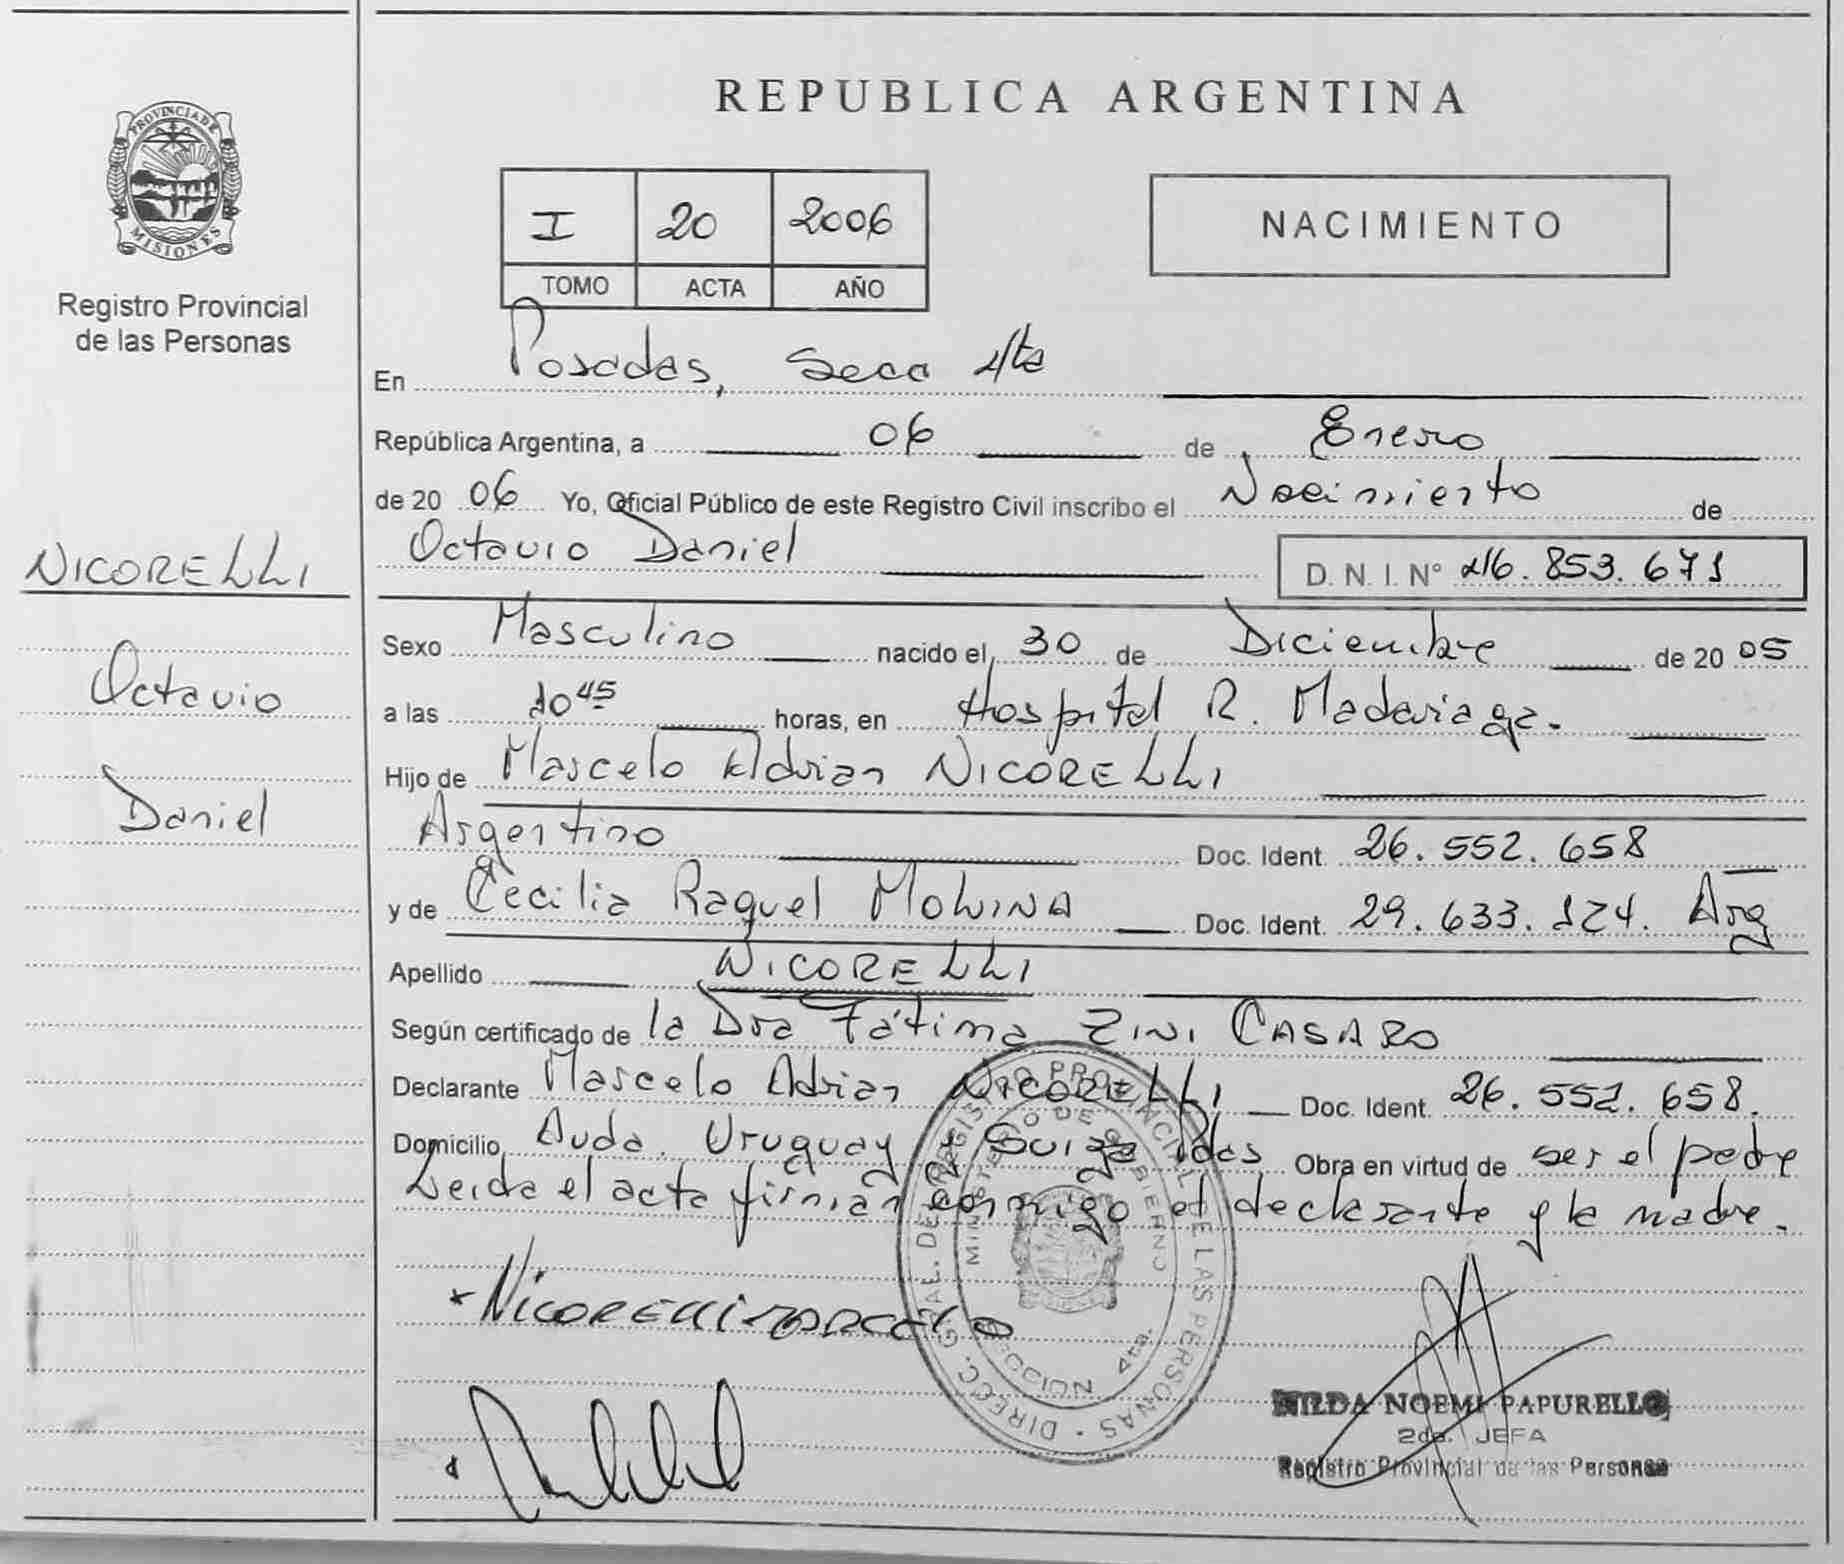 PROVINCIA DE
MISIONES
Registro Provincial
de las Personas
NICORELLI
Octavio
Daniel
REPUBLICA ARGENTINA
I 20 2006
TOMO ACTA AÑO
NACIMIENTO
En Posadas, Secc 4ta
República Argentina, a 06 de Enero
de 20 06 Yo, Oficial Público de este Registro Civil inscribo el Nacimiento de
Octavio Daniel D. N. I. N° 46.853.671
Sexo Masculino nacido el 30 de Diciembre de 20 05
a las 10 45 horas, en Hospital R. Madariaga.
Hijo de Marcelo Adrian NICORELLI
Argentino Doc. Ident. 26.552.658
y de Cecilia Raquel MOLINA Doc. Ident. 29.633.124. Arg
Apellido NICORELLI
Según certificado de la Dra Fátima ZINI CASARO
Declarante Marcelo Adrian NICORELLI Doc. Ident. 26.552.658.
Domicilio Avda. Uruguay y Suiza Pdas Obra en virtud de ser el padre
Leida el acta firman conmigo el declarante y la madre.
DIRECC. GRAL. DEL REGISTRO PROVINCIAL DE LAS PERSONAS
MINISTERIO DE GOBIERNO
SECCION 4ta.
Nicorelli Marcelo
NILDA NOEMI PAPURELLO
2da. JEFA
Registro Provincial de las Personas